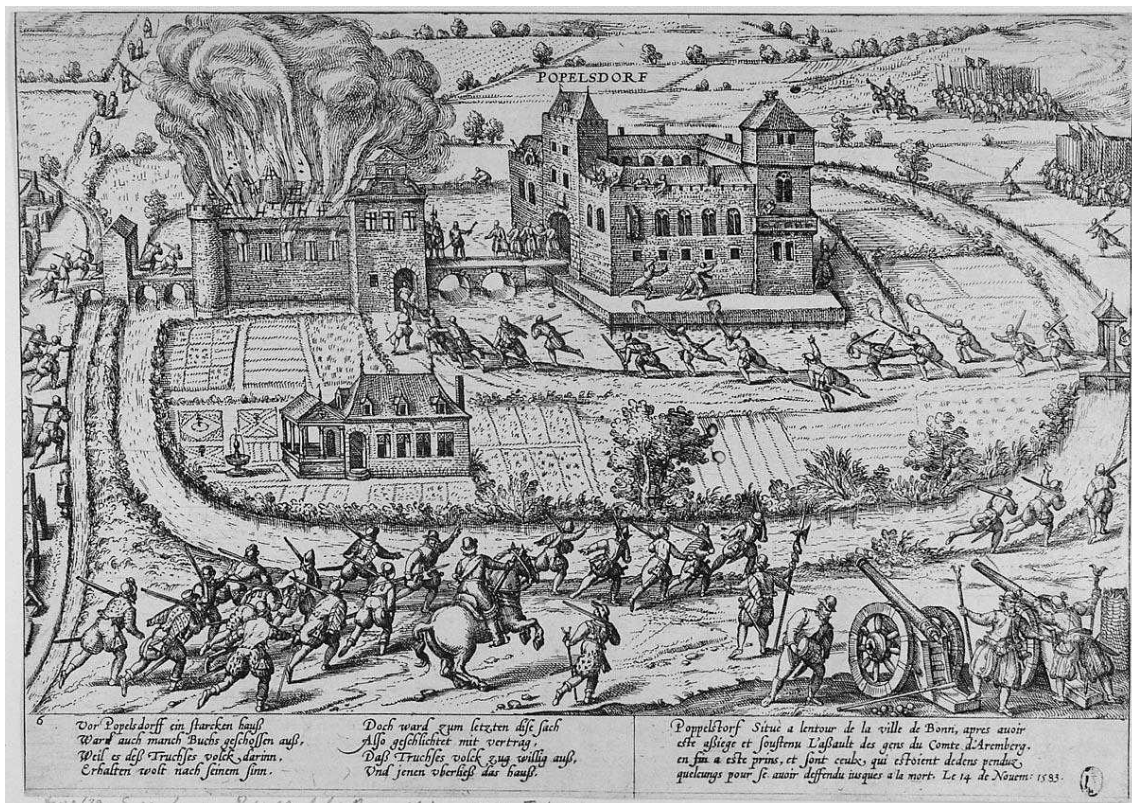 POPELSDORF
6
Vor Popelsdorff ein starcken hauß
Ward auch manch Buchs geschossen auß,
Weil es deß Truchses volck darinn,
Erhalten wolt nach seinem sinn.
Doch ward zum letzten dise sach
Also geschlichtet mit vertrag,
Daß Truchses volck zug willig auß,
Und jenen uberließ das hauß.
Poppelstorf Situé a lentour de la ville de Bonn, apres auoir
este assiege et soustenu L'assault des gens du Comte d'Aremberg.
en fin a este prins, et sont ceulx, qui estoient dedens penduz
quelcungs pour se auoir deffendu iusques a la mort. Le 14 de Nouem: 1583.